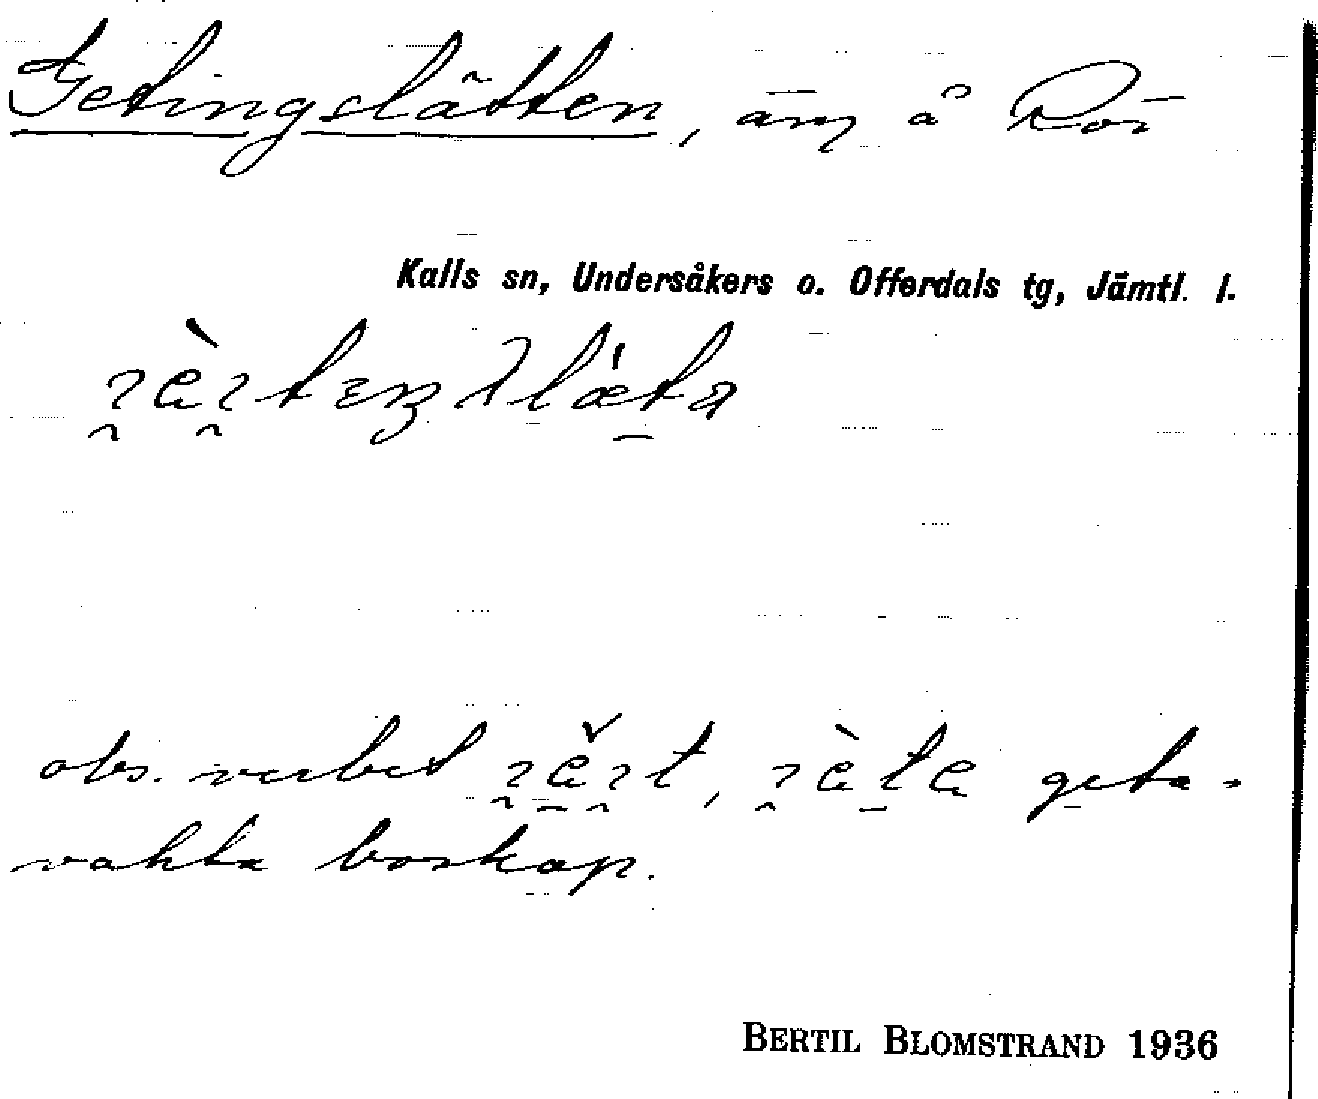 Getingslätten, äng å Rör
Kalls sn, Undersåkers o. Offerdals tg, Jämtl. l.
obs. verbet geta =
vakta boskap.
BERTIL BLOMSTRAND 1936